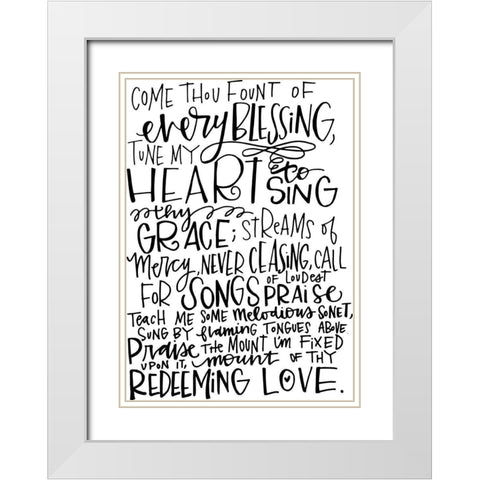 COME THOU FOUNT OF
every BLESSING,
TUNE MY
HEART to SING
thy
GRACE; STREAMS of
Mercy, NEVER CEASING, CALL
FOR SONGS OF LOUDEST PRAISE
TEACH ME SOME MeLODious SONET,
SUNG BY flaming TONGUES ABOVE
PRaise THE MOUNT I'm FIXED
UPON IT, mount OF THY
REDEEMING LOVE.